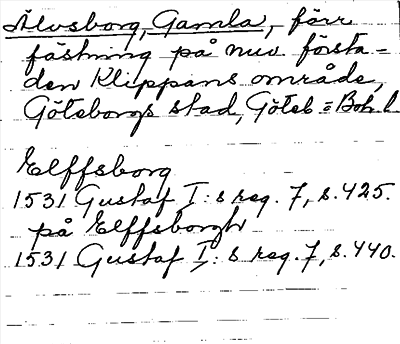 Älvsborg, Gamla, förr
fästning på nuv. första-
den Klippans område,
Göteborgs stad, Göteb = Boh l
Elffsborg
1531 Gustaf I:s reg. 7, s. 425.
på Elffsborgh
1531 Gustaf I:s reg. 7, s. 440.